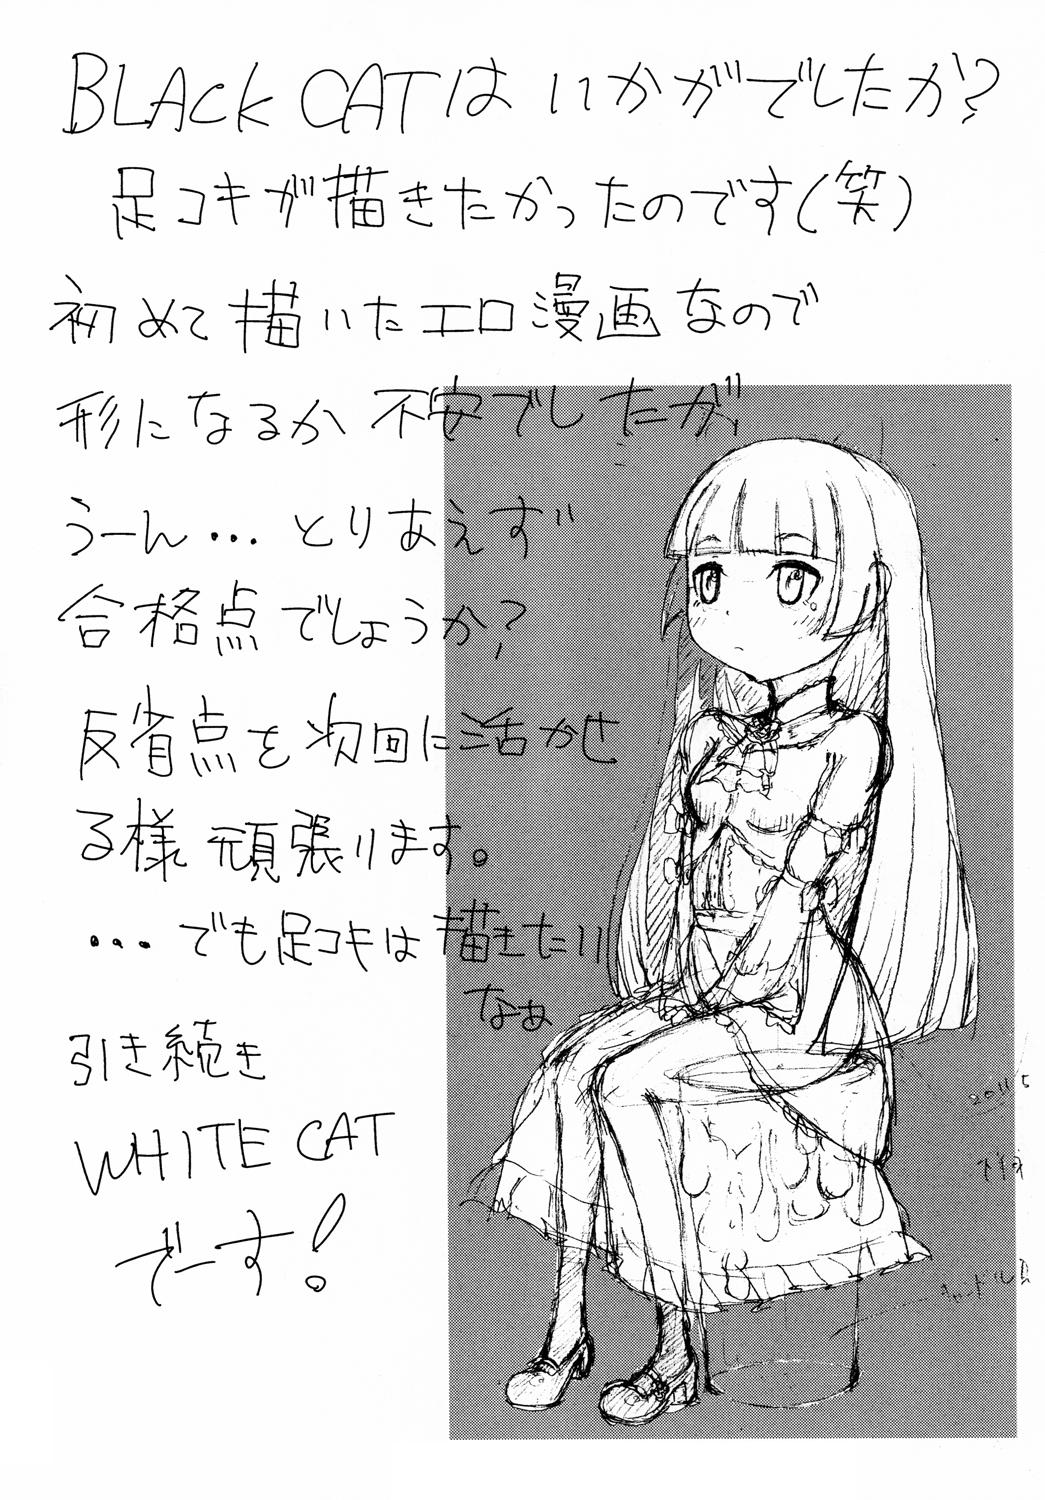 BLACK CATは いかがでしたか?
足コキが描きたかったのです(笑)
初めて描いたエロ漫画なので
形になるか 不安でしたが、
うーん… とりあえず
合格点でしょうか?
反省点を次回に活かせ
る様 頑張ります。
… でも足コキは描きたい
なぁ
引き続き
WHITE CAT
でーす!